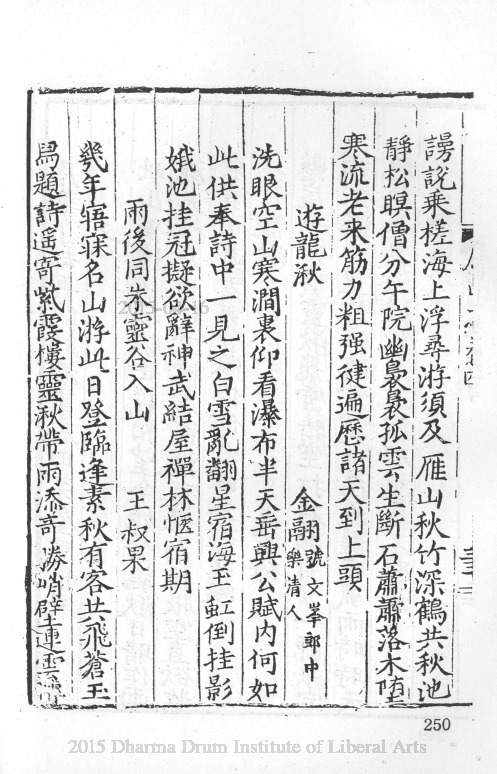 謾說乘槎海上浮尋游須及雁山秋竹深鶴共秋池
靜松暝僧分午院幽裊裊孤雲生斷石蕭蕭落木墮
寒流老来筋力粗强徤遍歷諸天到上頭
遊龍湫 金翮號文峯郎中樂清人
洗眼空山寒澗裏仰看瀑布半天垂興公賦内何如
此供奉詩中一見之白雪亂翻星宿海玉虹倒挂影
娥池挂冠擬欲辭神武結屋禪林愜宿期
雨後同朱靈谷入山 王叔果
幾年寤寐名山游此日登臨逢素秋有客共飛蒼玉
舄題詩遥寄紫霞樓靈湫帶雨添奇勝峭壁連雲
250
2015 Dharma Drum Institute of Liberal Arts